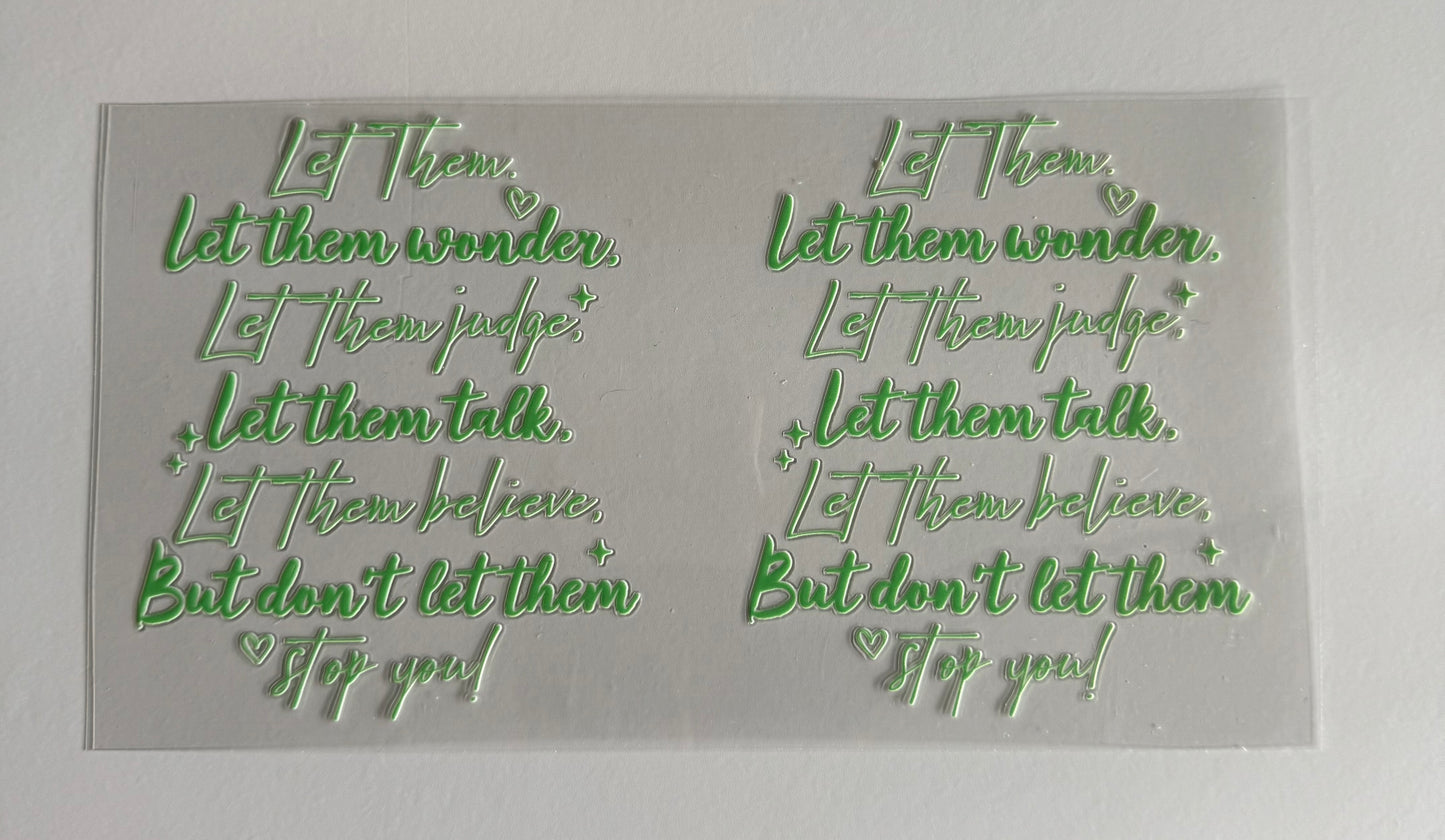 Let Them.
Let them wonder,
Let Them judge,
Let them talk,
Let Them believe,
But don't let them
stop you!
Let Them.
Let them wonder,
Let Them judge,
Let them talk,
Let Them believe,
But don't let them
stop you!